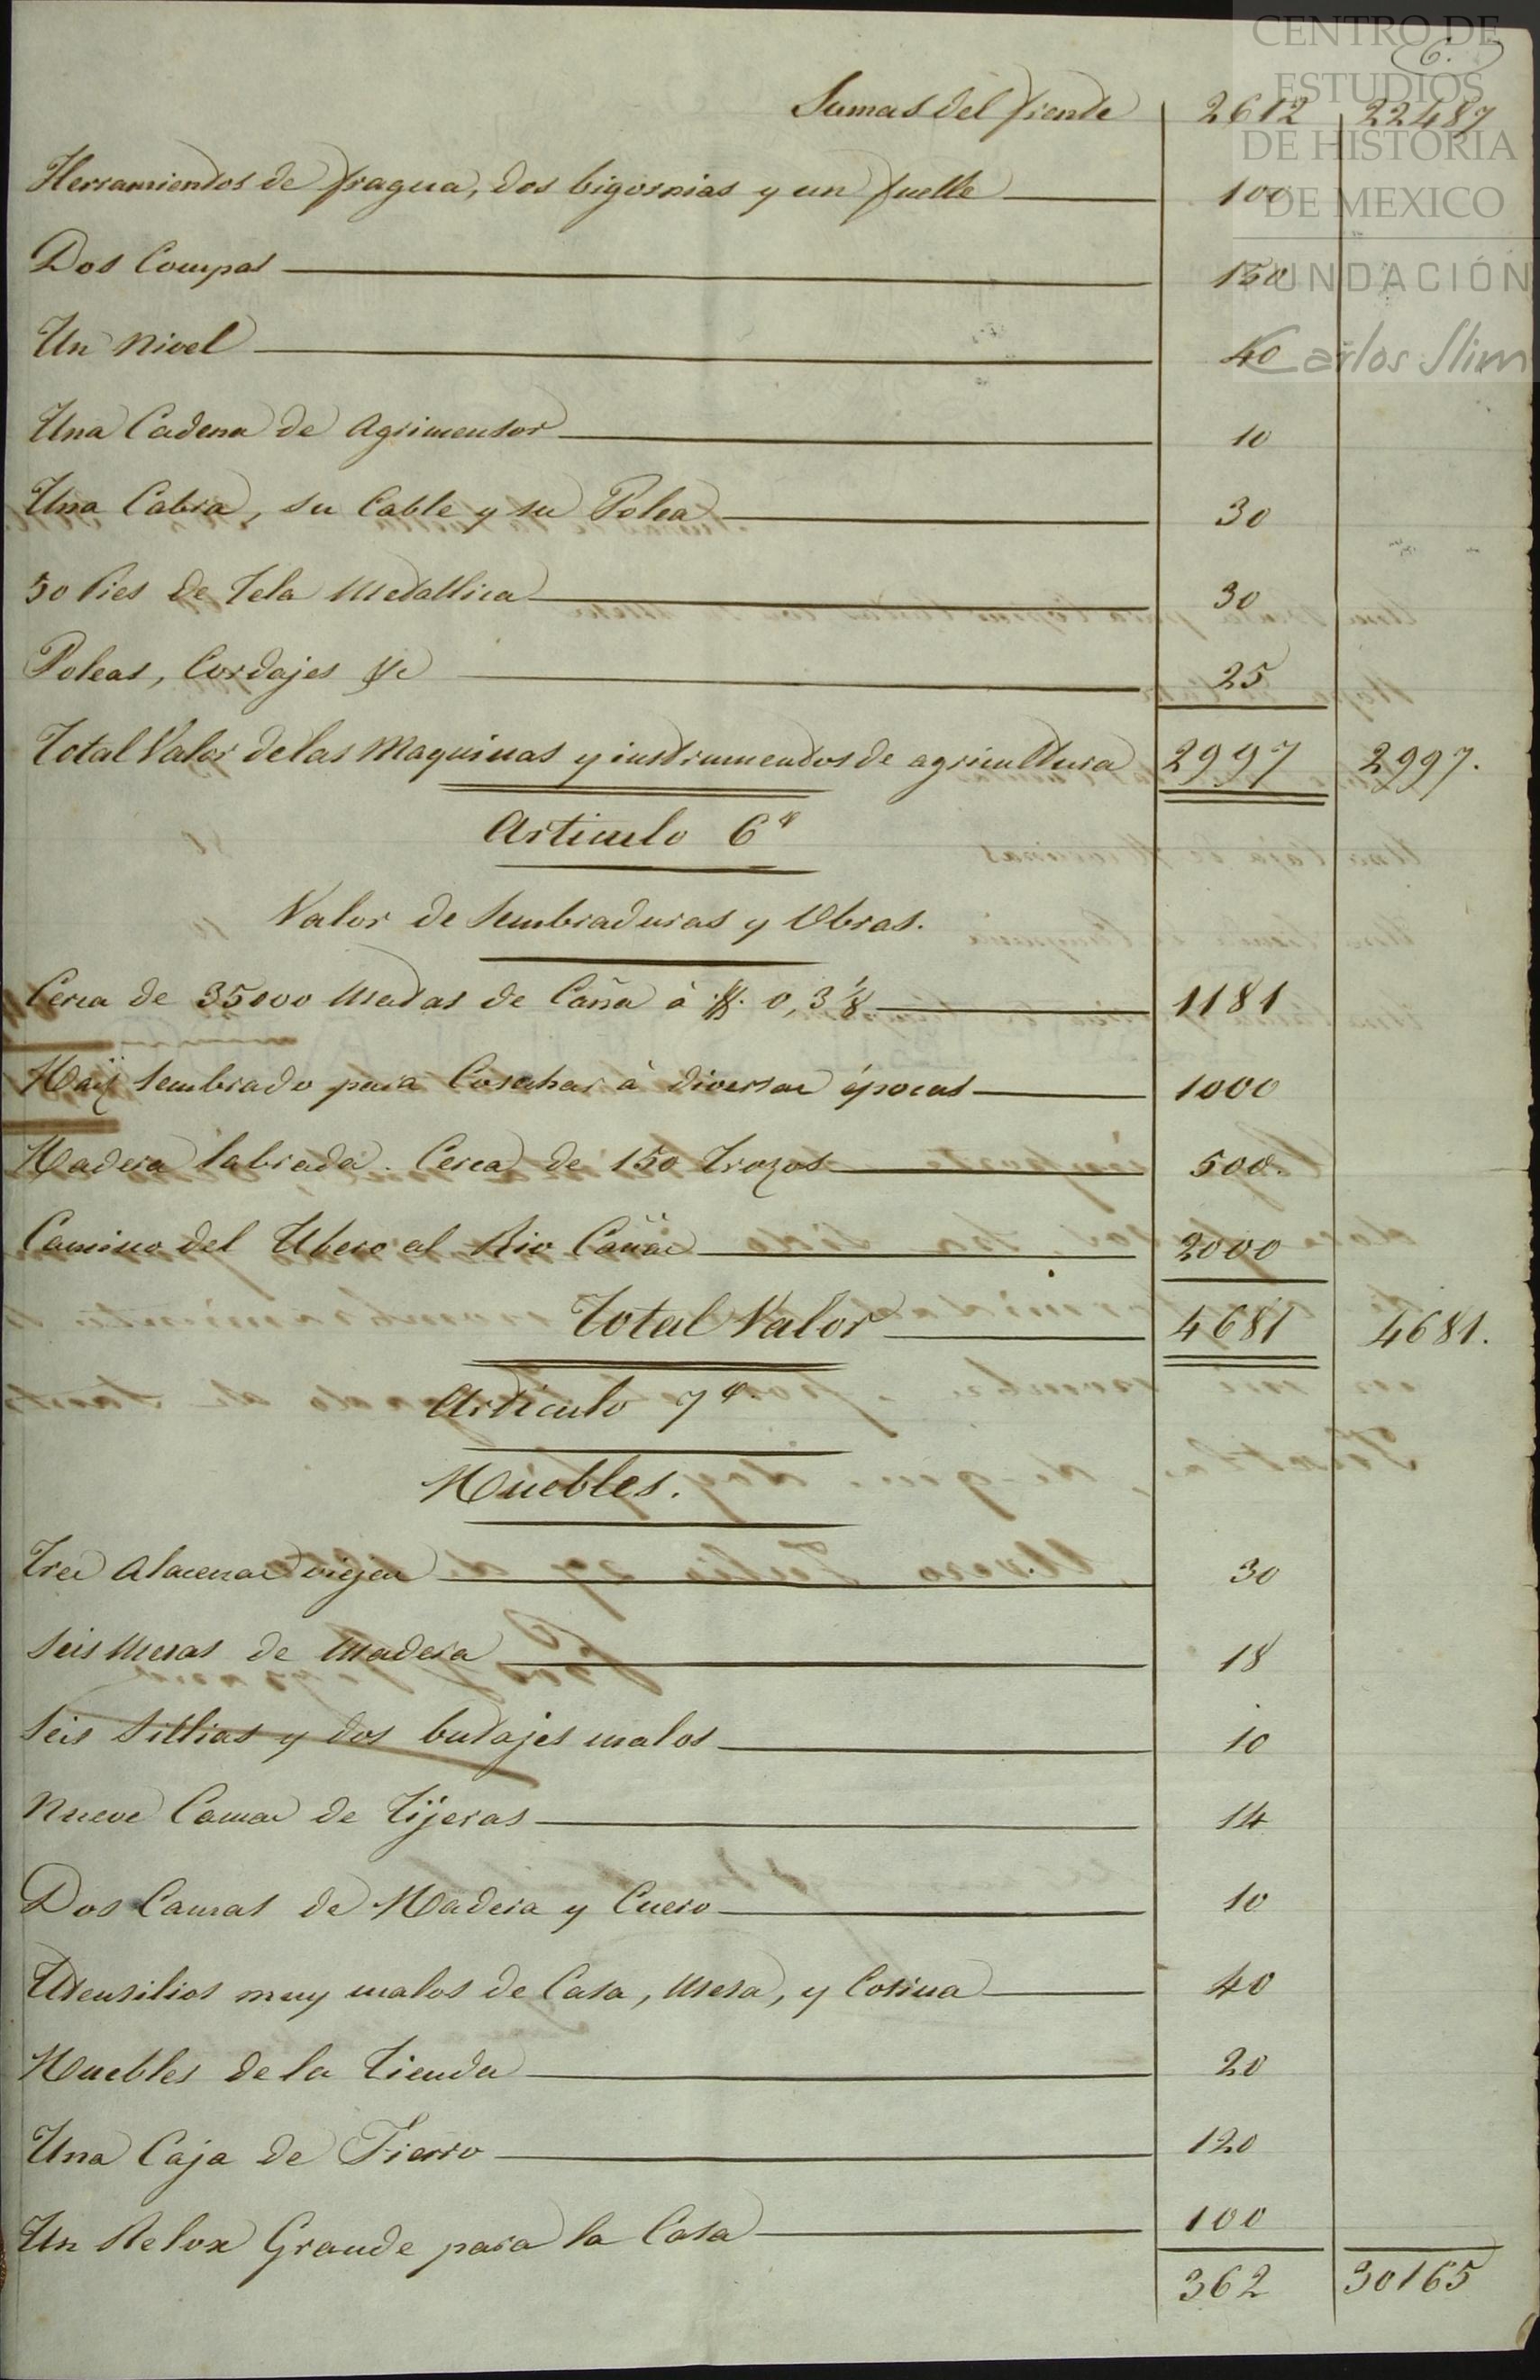 CENTRO DE
ESTUDIOS
DE HISTORIA
DE MEXICO
FUNDACIÓN
Carlos Slim
6.
Sumas del frente 2612 22487
Herramientos de fragua, dos bigornias y un fuelle 100
Dos Compas 150
Un Nivel 40
Una Cadena de Agrimensor 10
Una Cabra, su Cable y su Polea 30
50 Pies de Tela Metallica 30
Poleas, Cordajes &c 25
Total Valor de las Maquinas y instrumentos de agricultura 2997 2997.
Articulo 6º
Valor de Sembraduras y Obras.
Cerca de 35000 Matas de Caña à $. 0,3 1/8 1181
Maiz Sembrado para Cosechar à diversas épocas 1000
Madera labrada. Cerca de 150 Trozos 500.
Camino del Ubero al Rio Cañas 2000
Total Valor 4681 4681.
Articulo 7º.
Muebles.
Tres Alacenas viejas 30
Seis Mesas de Madera 18
Seis Sillias y dos butajes malos 10
Nueve Camas de Tijeras 14
Dos Camas de Madera y Cuero 10
Utensilios muy malos de Casa, Mesa, y Cosina 40
Muebles de la Tienda 20
Una Caja de Fierro 120
Un Relox Grande para la Casa 100
362 30165